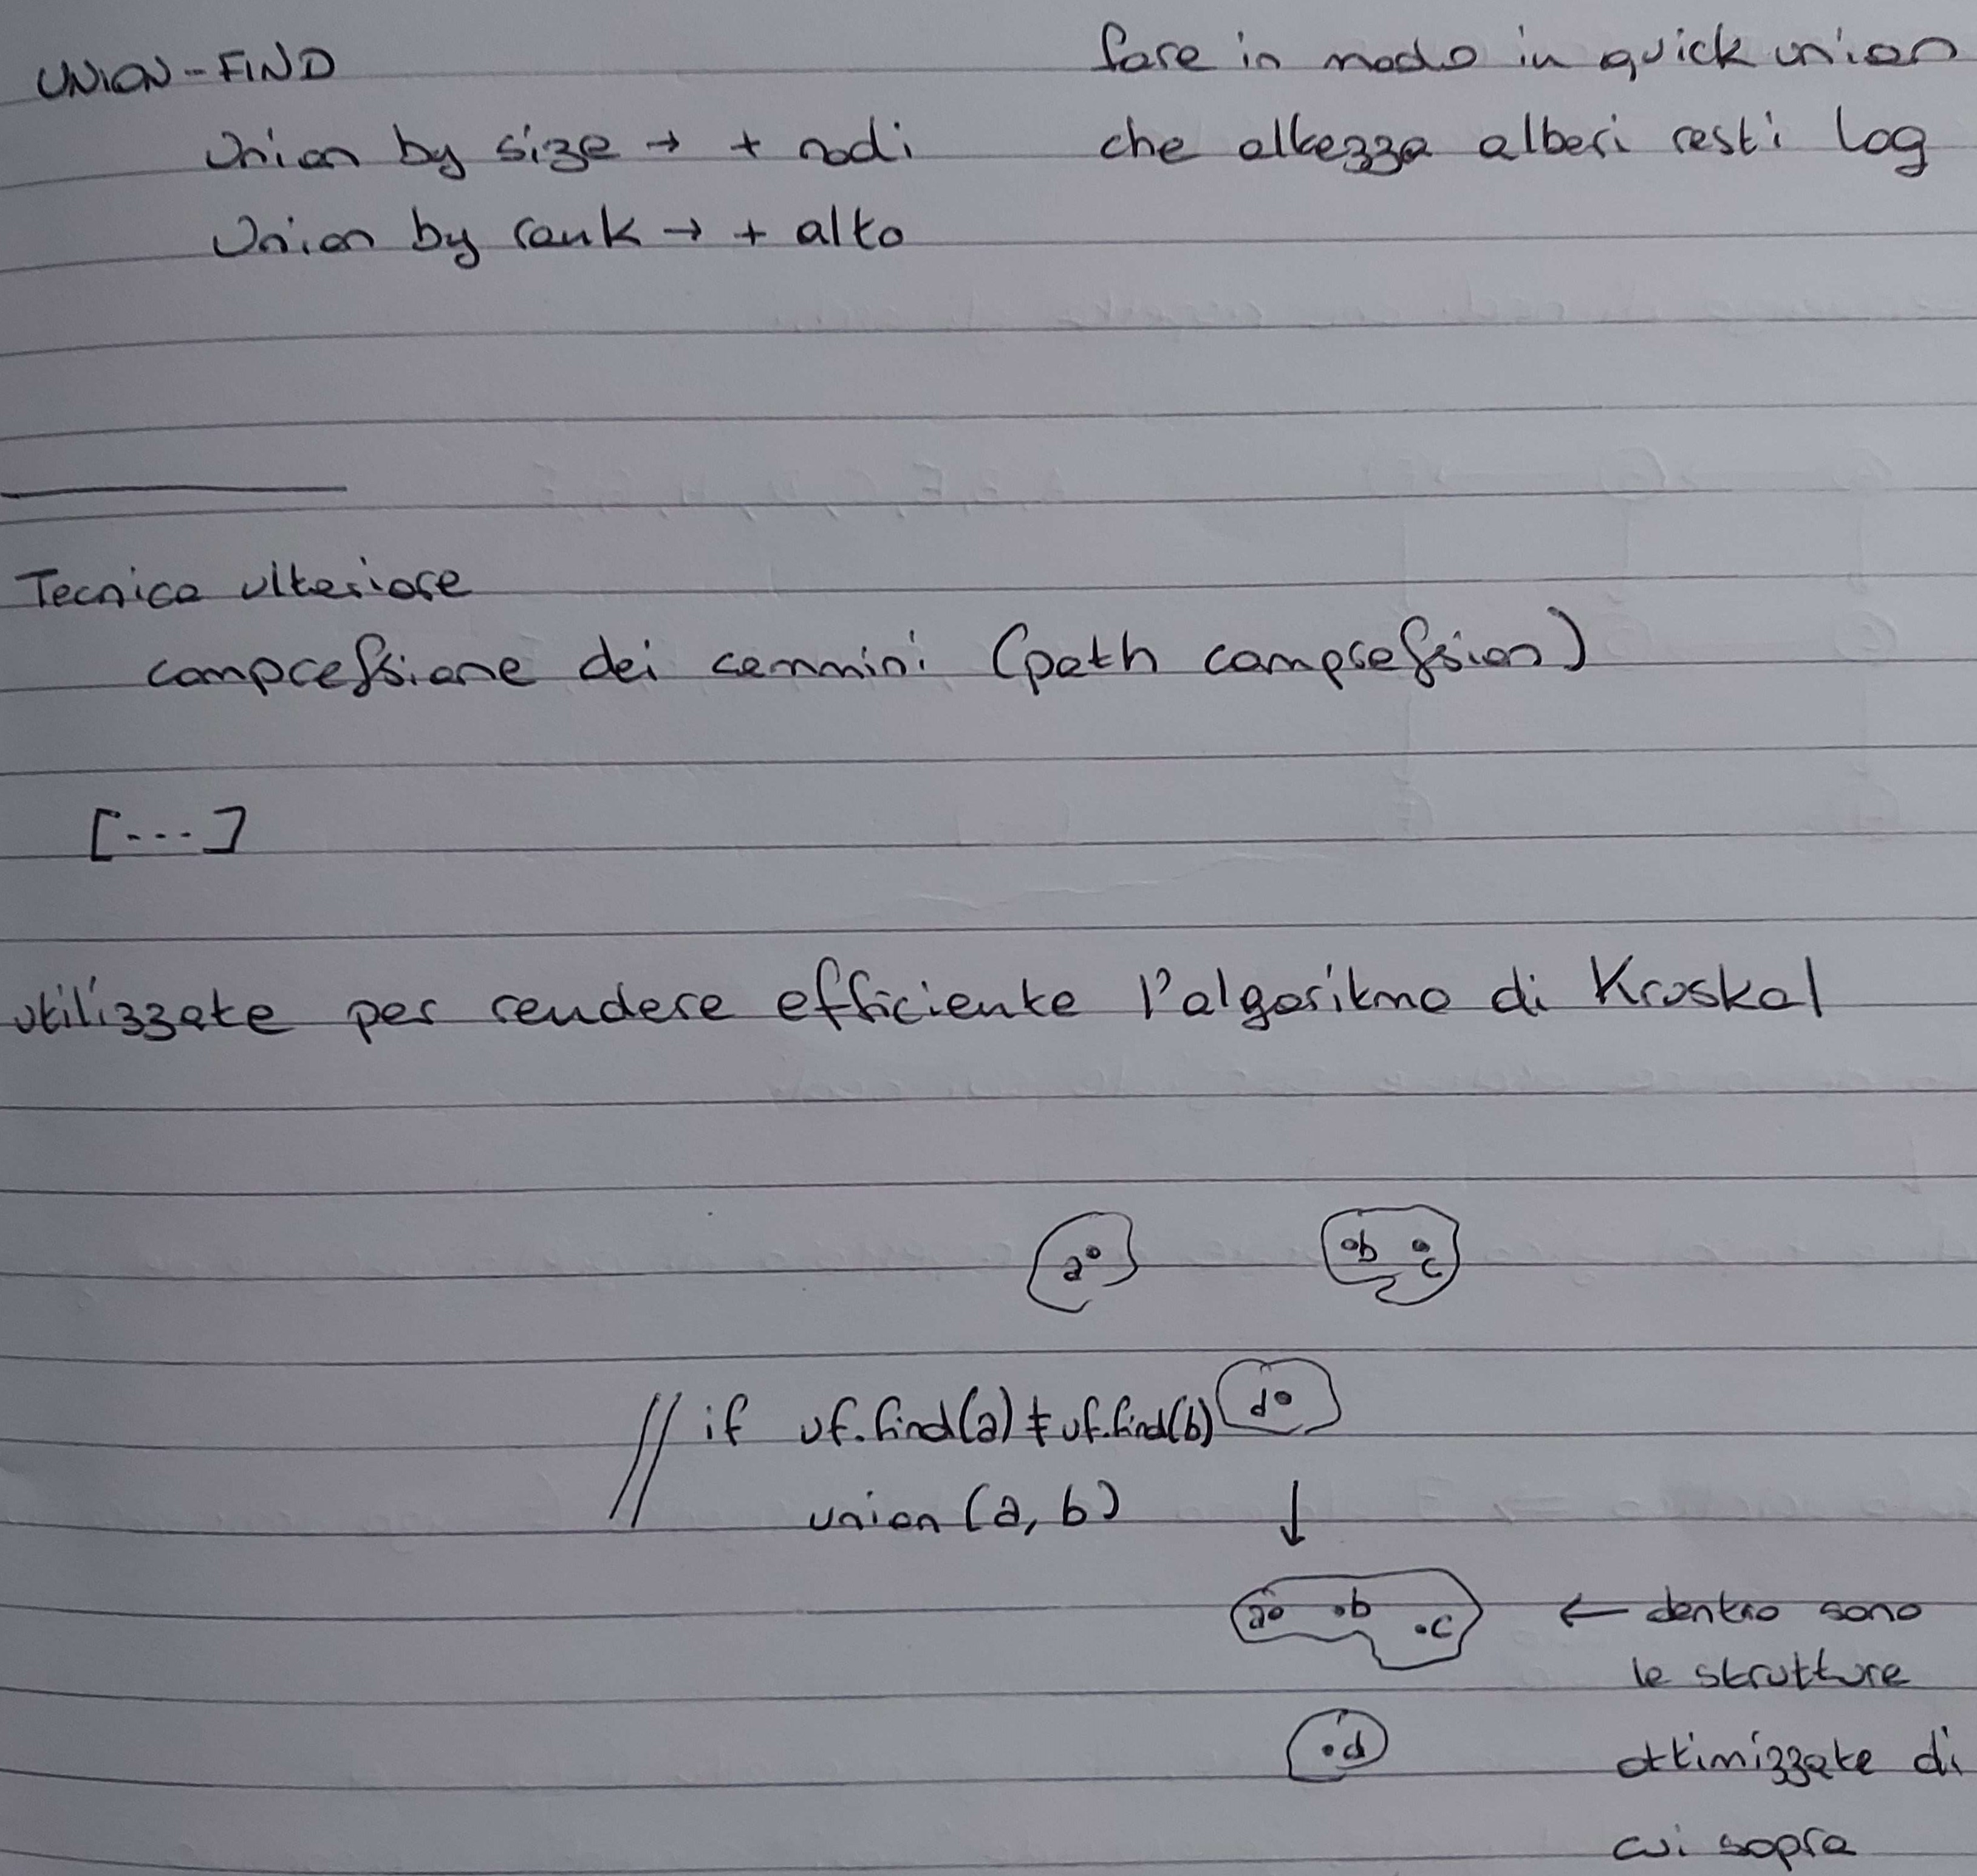 UNION-FIND
Union by size → + nodi
Union by rank → + alto
fare in modo in quick union
che altezza alberi resti log
Tecnica ulteriore
compressione dei cammini (path compression)
[...]
utilizzate per rendere efficiente l'algoritmo di Kruskal
a
b c
// if uf.find(a) ≠ uf.find(b)
d
union (a, b) ↓
a b c
← dentro sono
le strutture
d
ottimizzate di
cui sopra